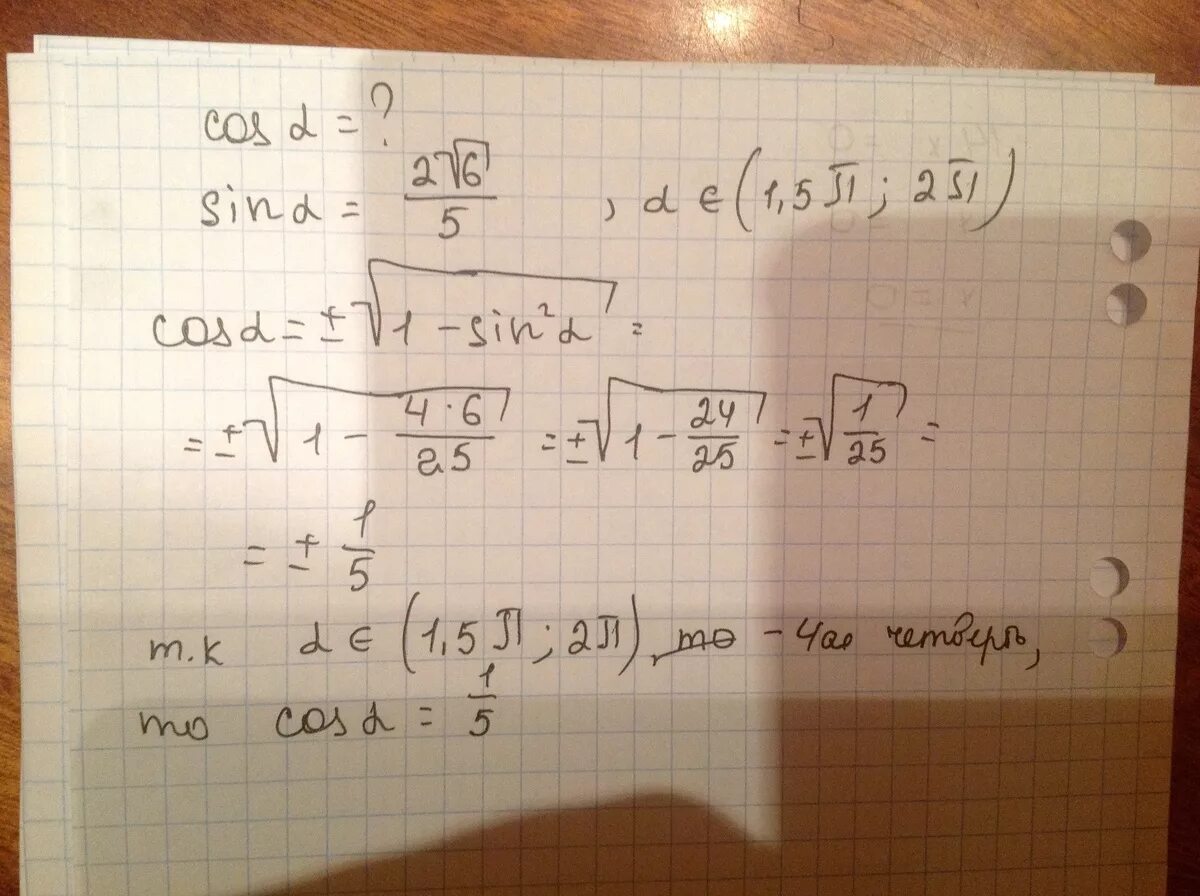 cos α = ?
sin α = 2√6/5 , α ∈ (1,5π ; 2π)
cos α = ±√(1 - sin²α) =
= ±√(1 - 4·6/25) = ±√(1 - 24/25) = ±√(1/25) =
= ± 1/5
т.к α ∈ (1,5π ; 2π), то - 4ая четверть,
то cos α = 1/5